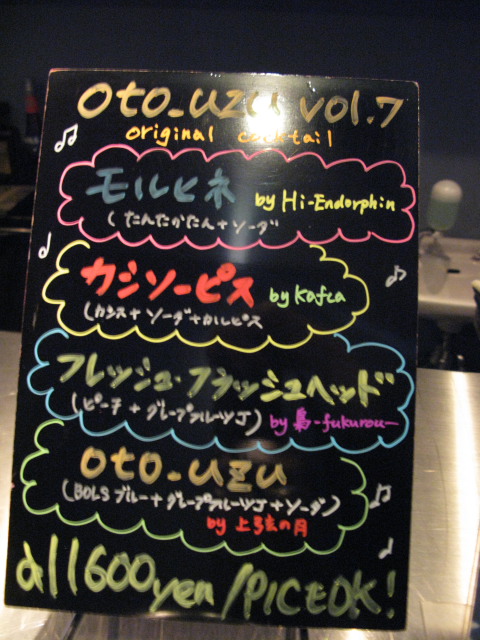 oto_uzu vol.7
original cocktail
モルヒネ by Hi-Endorphin
(たんたかたん+ソーダ
カシソーピス by Kafca
(カシス+ソーダ+カルピス
フレッシュ・フラッシュヘッド
(ピーチ+グレープフルーツJ) by 梟-fukurou-
oto_uzu
(BOLSブルー+グレープフルーツJ+ソーダ)
by 上弦の月
all 600yen/PICもOK!